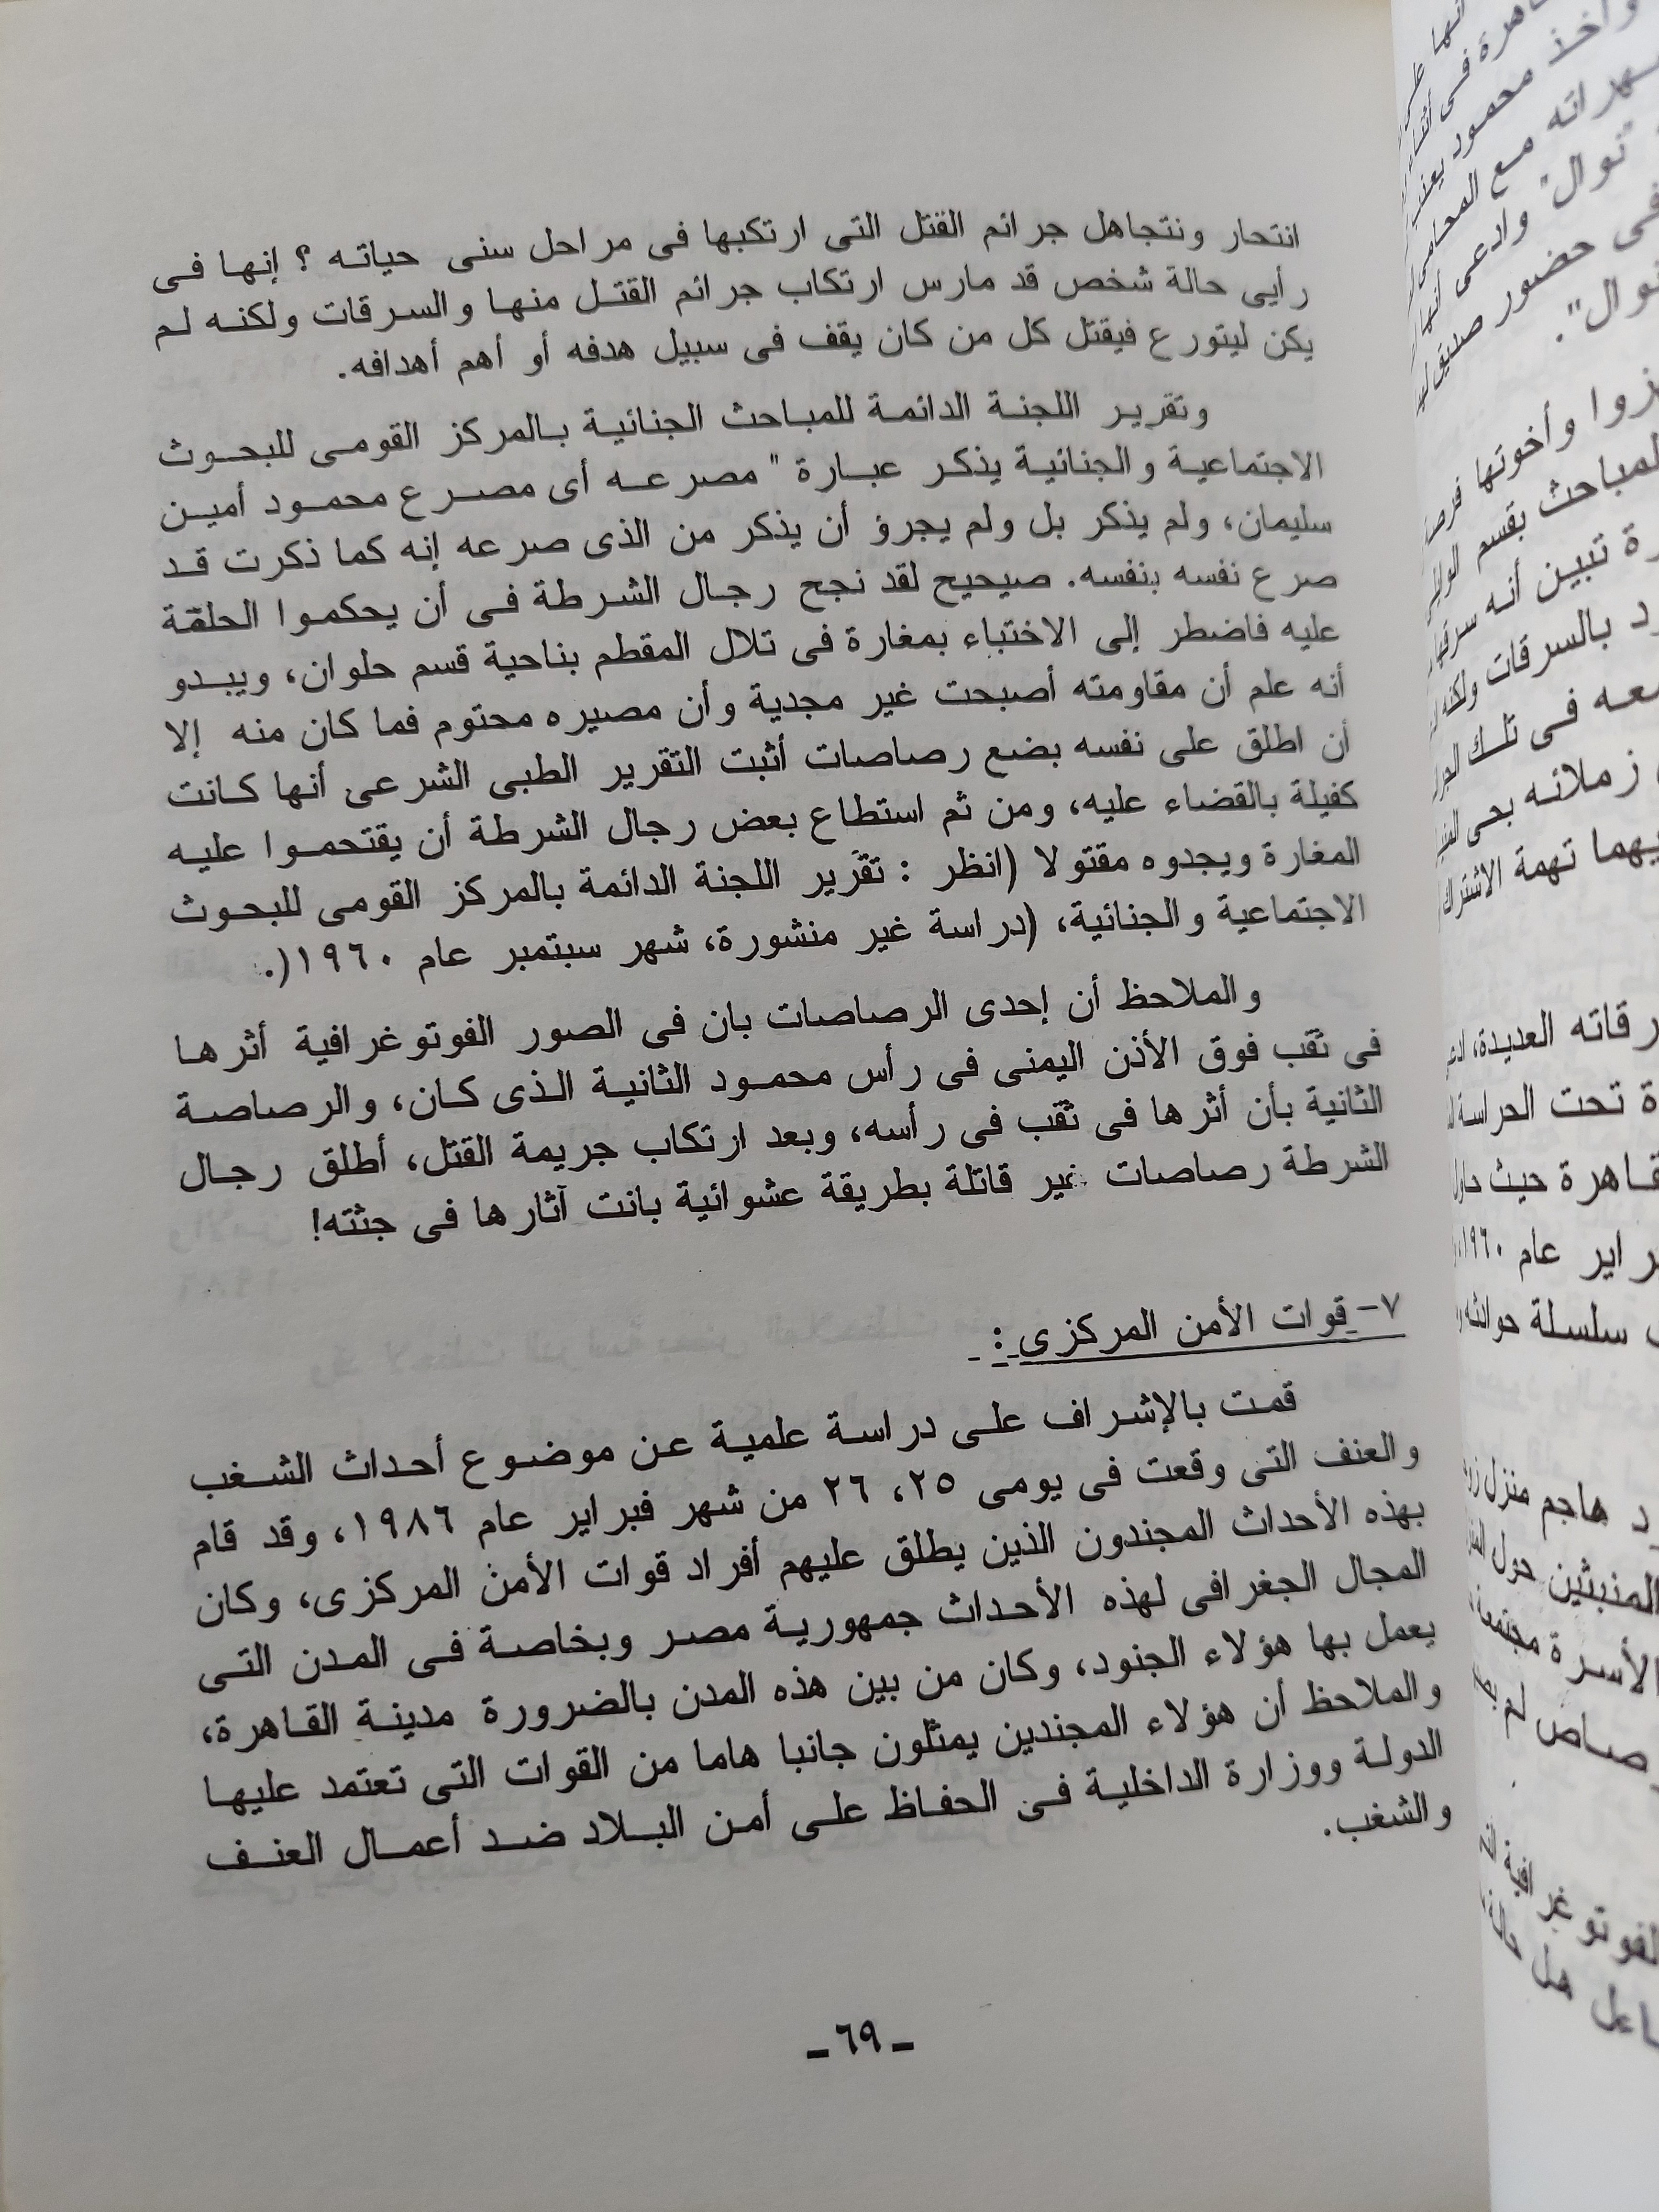 انتحار ونتجاهل جرائم القتل التى ارتكبها فى مراحل سنى حياته ؟ إنها فى
رأيى حالة شخص قد مارس ارتكاب جرائم القتل منها والسرقات ولكنه لم
يكن ليتورع فيقتل كل من كان يقف فى سبيل هدفه أو أهم أهدافه.
وتقرير اللجنة الدائمة للمباحث الجنائية بالمركز القومى للبحوث
الاجتماعية والجنائية يذكر عبارة " مصرعه أى مصرع محمود أمين
سليمان، ولم يذكر بل ولم يجرؤ أن يذكر من الذى صرعه إنه كما ذكرت قد
صرع نفسه بنفسه. صيحيح لقد نجح رجال الشرطة فى أن يحكموا الحلقة
عليه فاضطر إلى الاختباء بمغارة فى تلال المقطم بناحية قسم حلوان، ويبدو
أنه علم أن مقاومته أصبحت غير مجدية وأن مصيره محتوم فما كان منه إلا
أن اطلق على نفسه بضع رصاصات أثبت التقرير الطبى الشرعى أنها كانت
كفيلة بالقضاء عليه، ومن ثم استطاع بعض رجال الشرطة أن يقتحموا عليه
المغارة ويجدوه مقتولا (انظر : تقرير اللجنة الدائمة بالمركز القومى للبحوث
الاجتماعية والجنائية، (دراسة غير منشورة، شهر سبتمبر عام ١٩٦٠(.
والملاحظ أن إحدى الرصاصات بان فى الصور الفوتوغرافية أثرها
فى ثقب فوق الأذن اليمنى فى رأس محمود الثانية الذى كان، والرصاصة
الثانية بأن أثرها فى ثقب فى رأسه، وبعد ارتكاب جريمة القتل، أطلق رجال
الشرطة رصاصات غير قاتلة بطريقة عشوائية بانت آثارها فى جثته!
٧- قوات الأمن المركزى :
قمت بالإشراف على دراسة علمية عن موضوع أحداث الشغب
والعنف التى وقعت فى يومى ٢٥، ٢٦ من شهر فبراير عام ١٩٨٦، وقد قام
بهذه الأحداث المجندون الذين يطلق عليهم أفراد قوات الأمن المركزى، وكان
المجال الجغرافى لهذه الأحداث جمهورية مصر وبخاصة فى المدن التى
يعمل بها هؤلاء الجنود، وكان من بين هذه المدن بالضرورة مدينة القاهرة،
والملاحظ أن هؤلاء المجندين يمثلون جانبا هاما من القوات التى تعتمد عليها
الدولة ووزارة الداخلية فى الحفاظ على أمن البلاد ضد أعمال العنف
والشغب.
ـ ٦٩ ـ
وأخذ محمود
مع
"نوال" وادعى أنها
فى حضور صديق
نوال".
وأخوتها
بقسم
تبين أنه
بالسرقات
فى تلك
زملائه بحى
تهمة الاشتراك
العديدة،
تحت الحراسة
حيث
عام ١٩٦٠
سلسلة
هاجم منزل
المنبثين حول
الأسرة
لم
هل